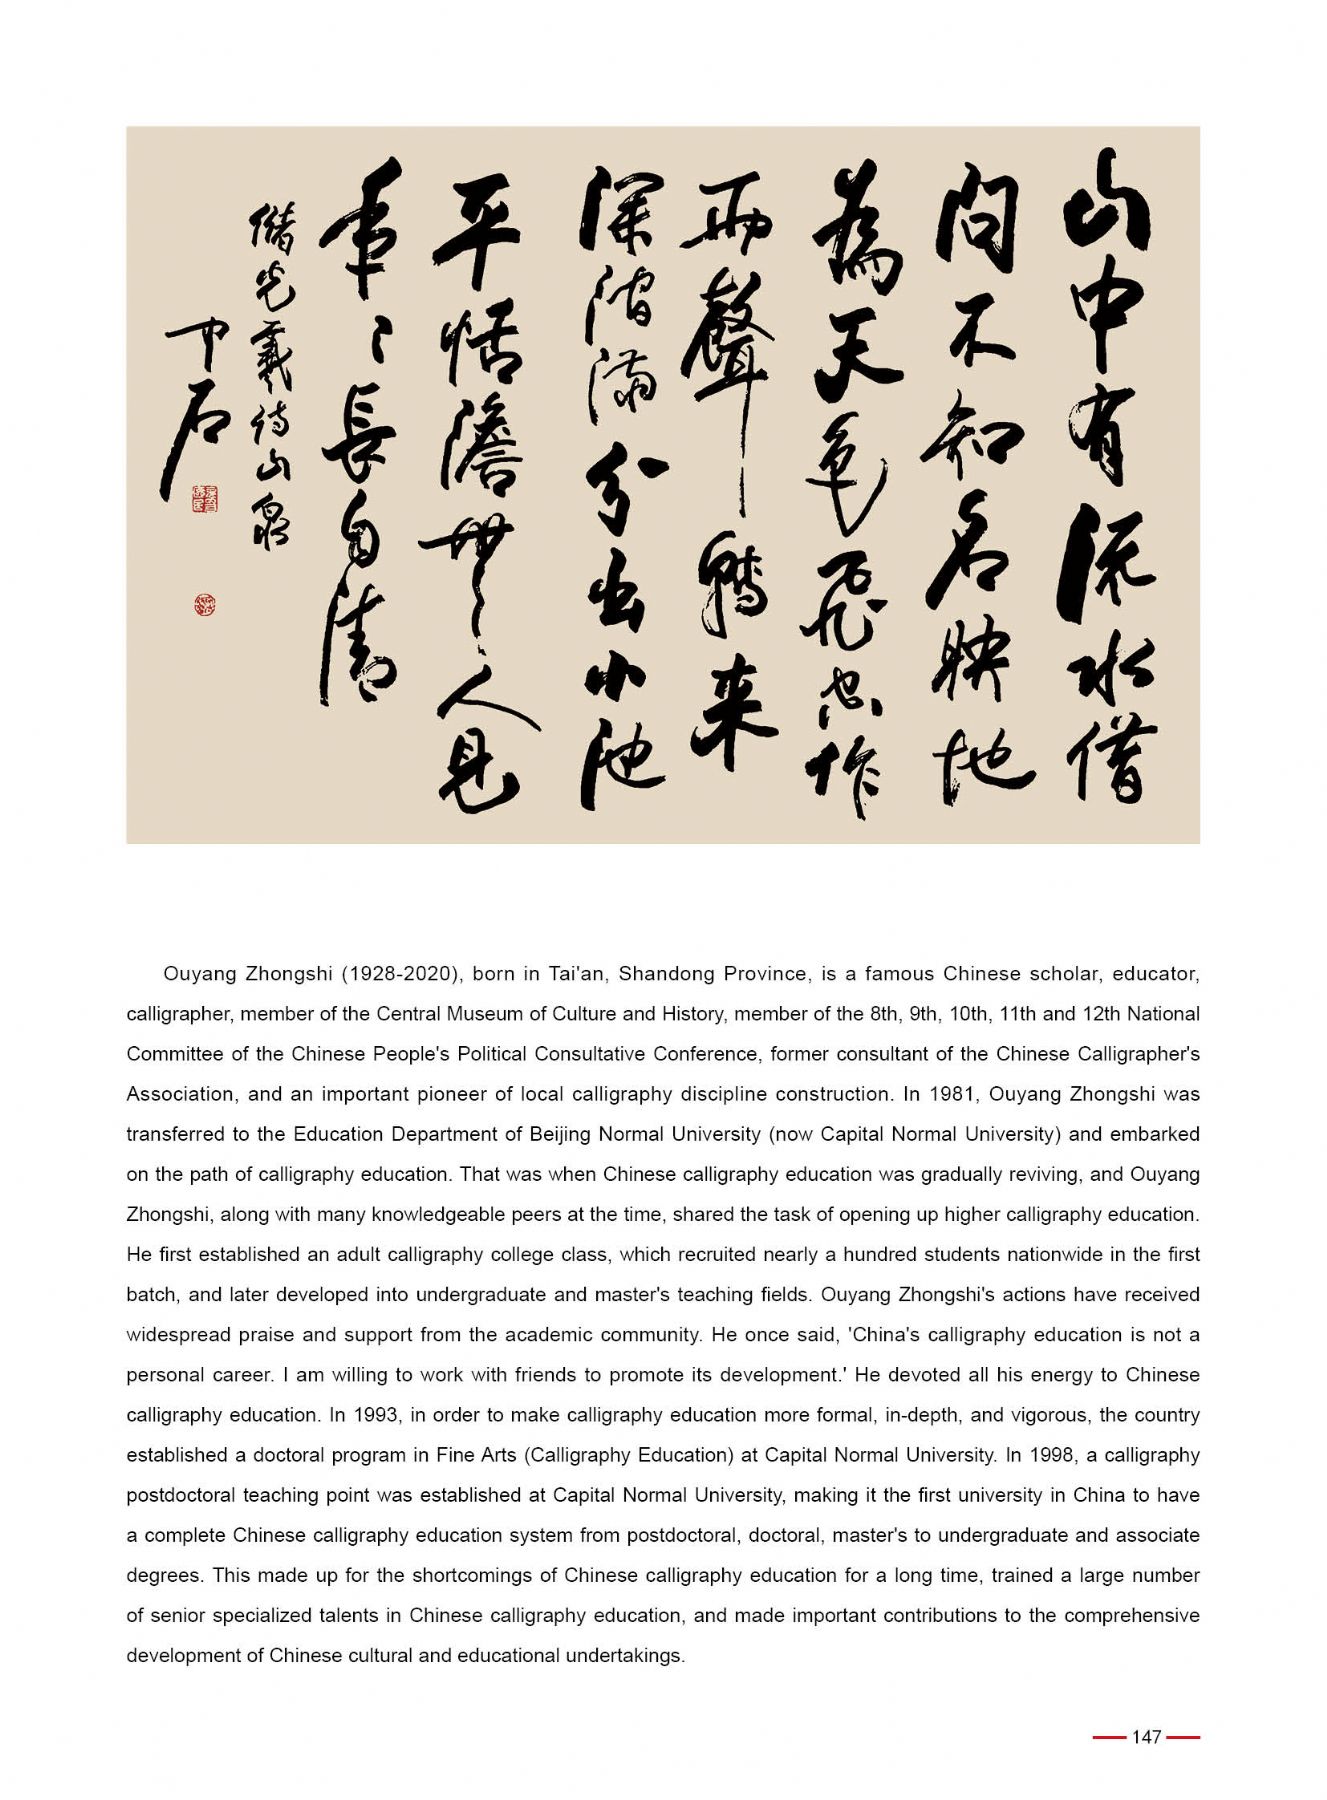 山中有流水借
問不知名映地
為天色飛空作
雨聲轉來
深澗滿分出小池
平恬澹無人見
年〻長自清
儲光羲詩山泉
中石
Ouyang Zhongshi (1928-2020), born in Tai'an, Shandong Province, is a famous Chinese scholar, educator,
calligrapher, member of the Central Museum of Culture and History, member of the 8th, 9th, 10th, 11th and 12th National
Committee of the Chinese People's Political Consultative Conference, former consultant of the Chinese Calligrapher's
Association, and an important pioneer of local calligraphy discipline construction. In 1981, Ouyang Zhongshi was
transferred to the Education Department of Beijing Normal University (now Capital Normal University) and embarked
on the path of calligraphy education. That was when Chinese calligraphy education was gradually reviving, and Ouyang
Zhongshi, along with many knowledgeable peers at the time, shared the task of opening up higher calligraphy education.
He first established an adult calligraphy college class, which recruited nearly a hundred students nationwide in the first
batch, and later developed into undergraduate and master's teaching fields. Ouyang Zhongshi's actions have received
widespread praise and support from the academic community. He once said, 'China's calligraphy education is not a
personal career. I am willing to work with friends to promote its development.' He devoted all his energy to Chinese
calligraphy education. In 1993, in order to make calligraphy education more formal, in-depth, and vigorous, the country
established a doctoral program in Fine Arts (Calligraphy Education) at Capital Normal University. In 1998, a calligraphy
postdoctoral teaching point was established at Capital Normal University, making it the first university in China to have
a complete Chinese calligraphy education system from postdoctoral, doctoral, master's to undergraduate and associate
degrees. This made up for the shortcomings of Chinese calligraphy education for a long time, trained a large number
of senior specialized talents in Chinese calligraphy education, and made important contributions to the comprehensive
development of Chinese cultural and educational undertakings.
147